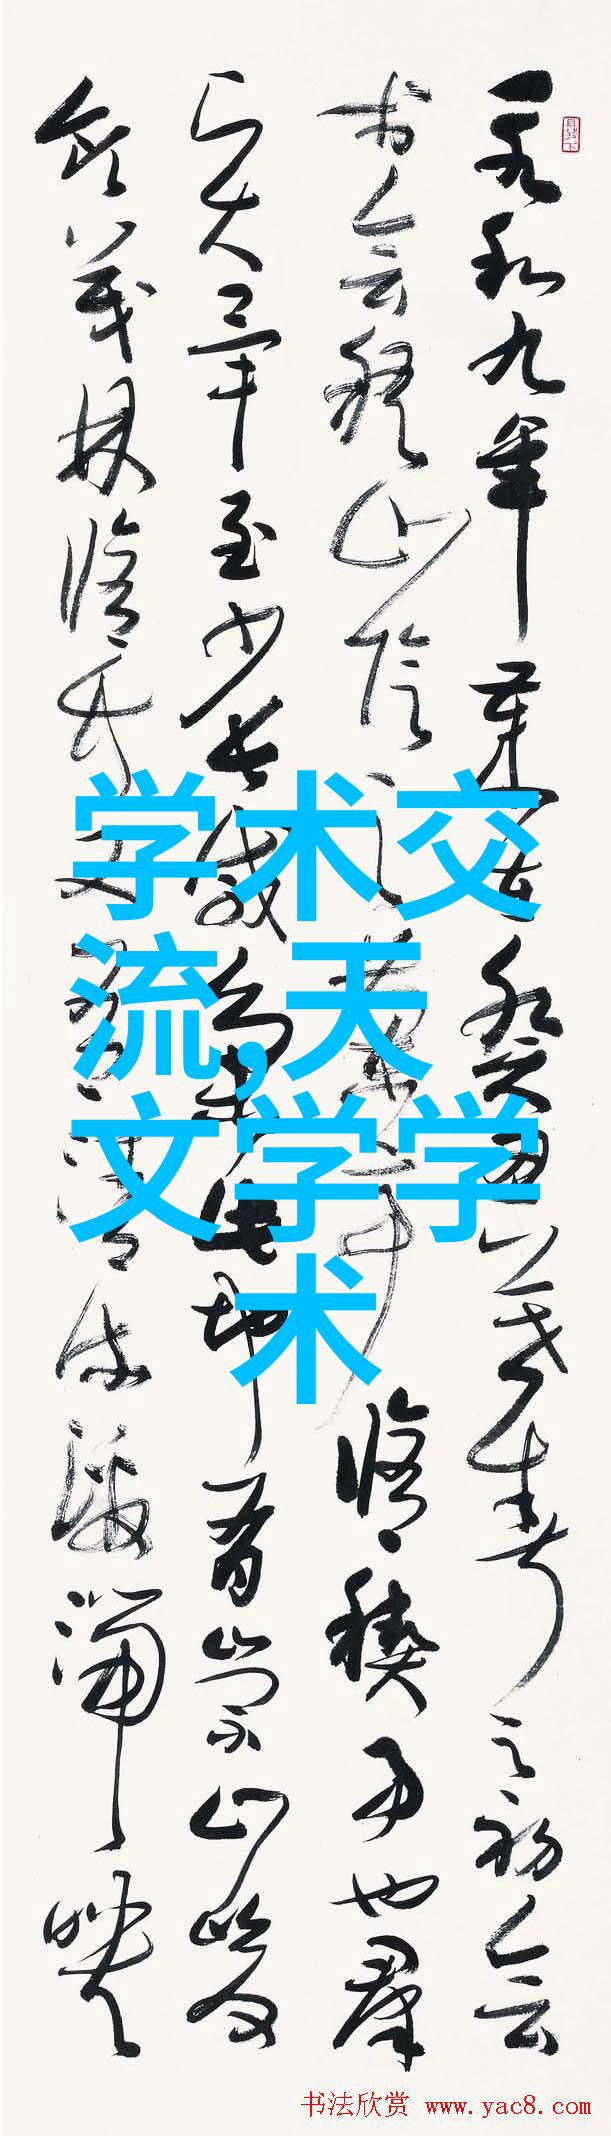 永和九年歲在癸丑暮春之初會
於會稽山陰之蘭亭脩禊事也羣
賢畢至少長咸集此地有崇山峻
領茂林脩竹又有清流激湍映
学术交
流,天
文学学
术
书法欣赏 www.yac8.com